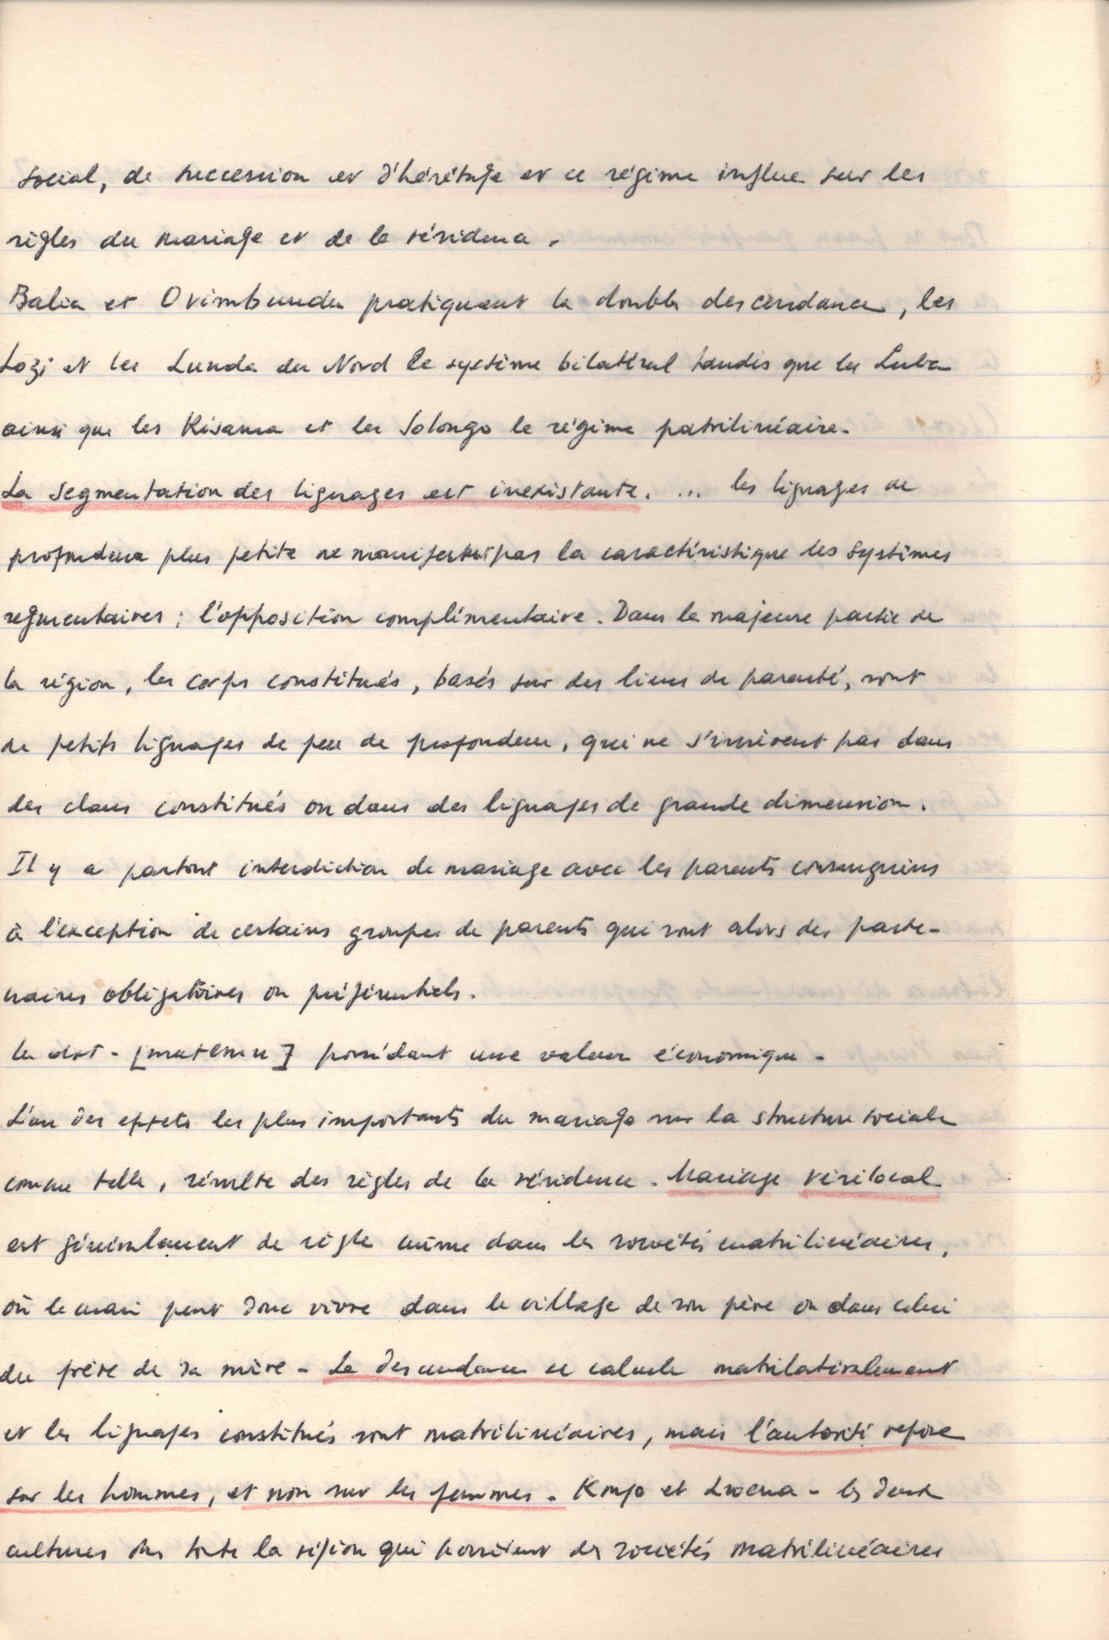 social, de succession et d'héritage et ce régime influe sur les
règles du mariage et de la résidence.
Balia et Ovimbundu pratiquent la double descendance, les
Lozi et les Lunda du Nord le système bilatéral tandis que les Luba
ainsi que les Kisama et les Solongo le régime patrilinéaire.
La segmentation des lignages est inexistante. ... les lignages de
profondeur plus petite ne manifestent pas la caractéristique des systèmes
segmentaires; l'opposition complémentaire. Dans la majeure partie de
la région, les corps constitués, basés sur des liens de parenté, sont
de petits lignages de peu de profondeur, qui ne s'insèrent pas dans
des clans constitués ou dans des lignages de grande dimension.
Il y a partout interdiction de mariage avec les parents consanguins
à l'exception de certains groupes de parents qui sont alors des parte-
naires obligatoires ou préférentiels.
la dot - [mutemu] possédant une valeur économique -
L'un des effets les plus importants du mariage sur la structure sociale
comme telle, résulte des règles de la résidence. Mariage virilocal
est généralement de règle même dans les sociétés matrilinéaires,
où le mari peut donc vivre dans le village de son père ou dans celui
du frère de sa mère - La descendance se calcule matrilatéralement
et les lignages constitués sont matrilinéaires, mais l'autorité repose
sur les hommes, et non sur les femmes. Kongo et Lwena - les deux
cultures de toute la région qui possèdent des sociétés matrilinéaires